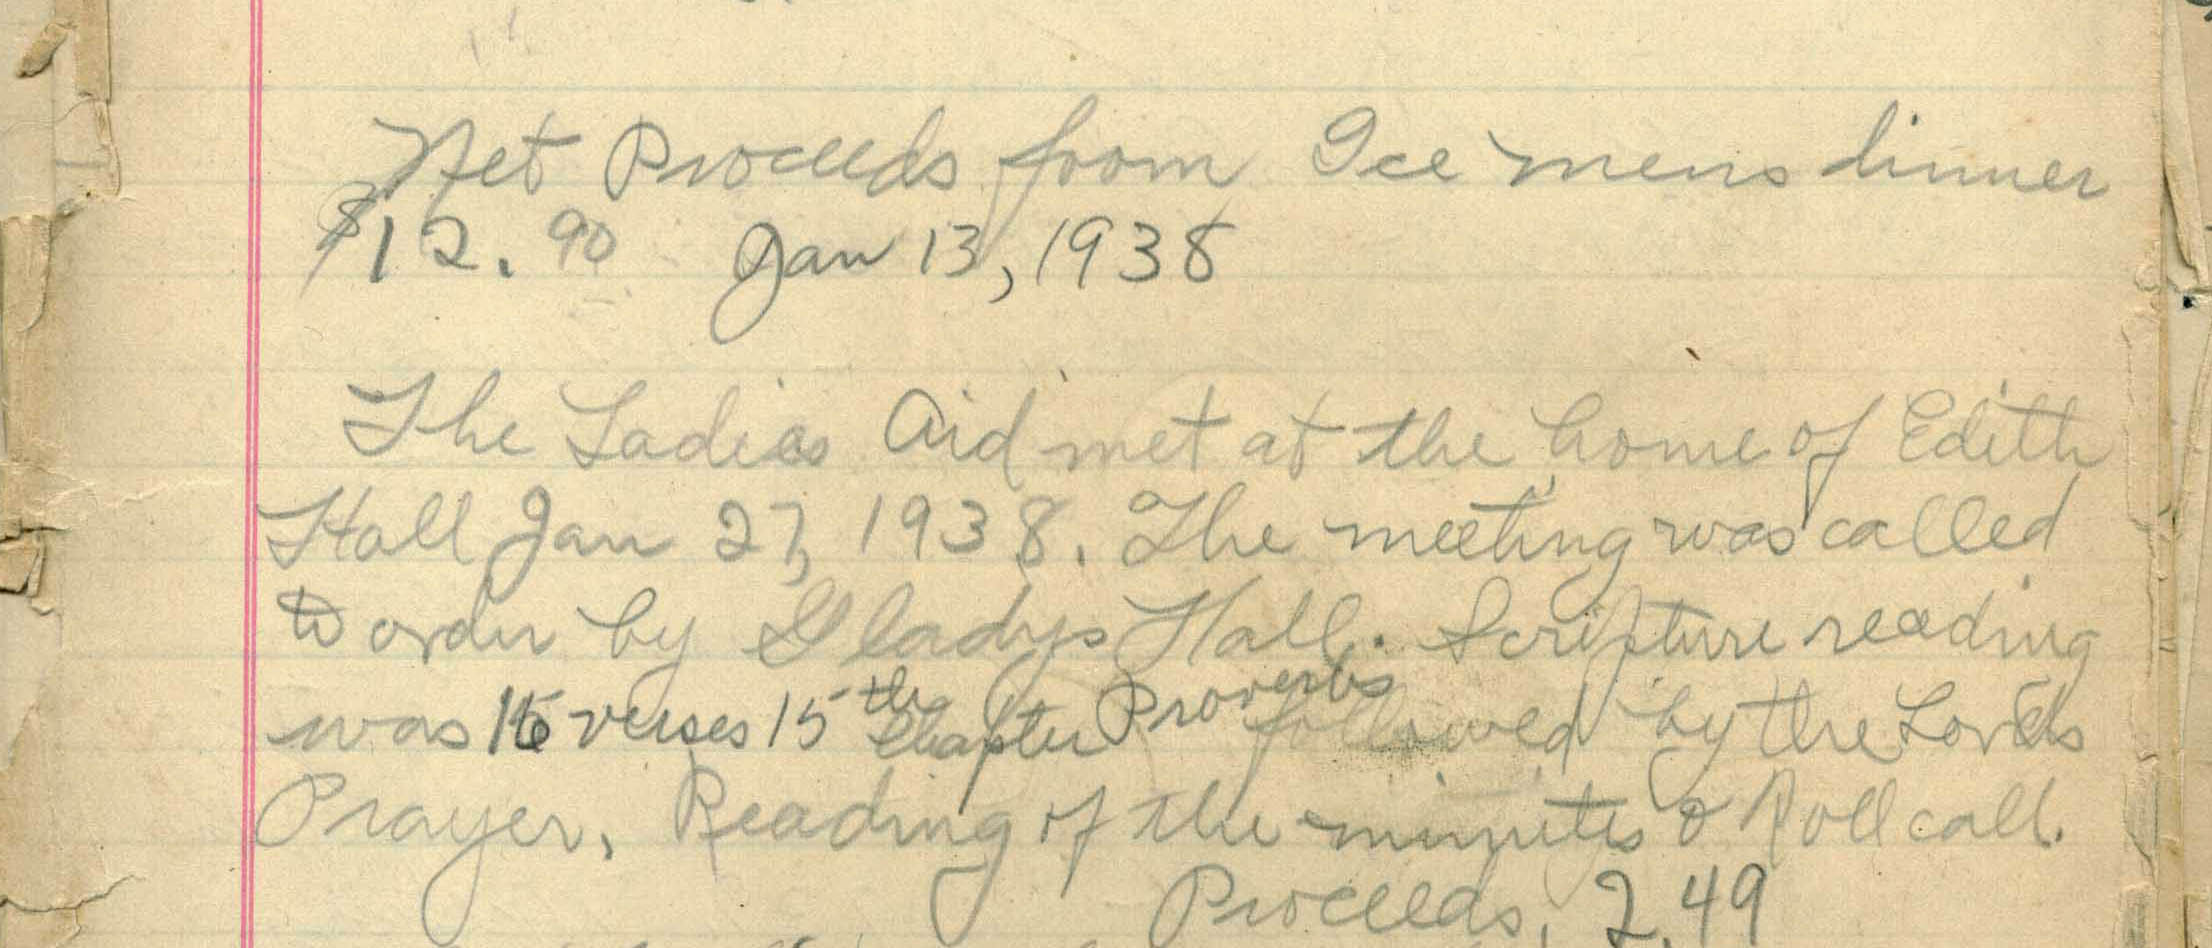 Net Proceeds from Ice mens dinner
$12.90 Jan 13, 1938
The Ladies Aid met at the home of Edith
Hall Jan 27, 1938. The meeting was called
to order by Gladys Hall. Scripture reading
was 16 verses 15th Chapter Proverbs followed by the Lords
Prayer. Reading of the minutes & Roll call.
Proceeds, 2.49